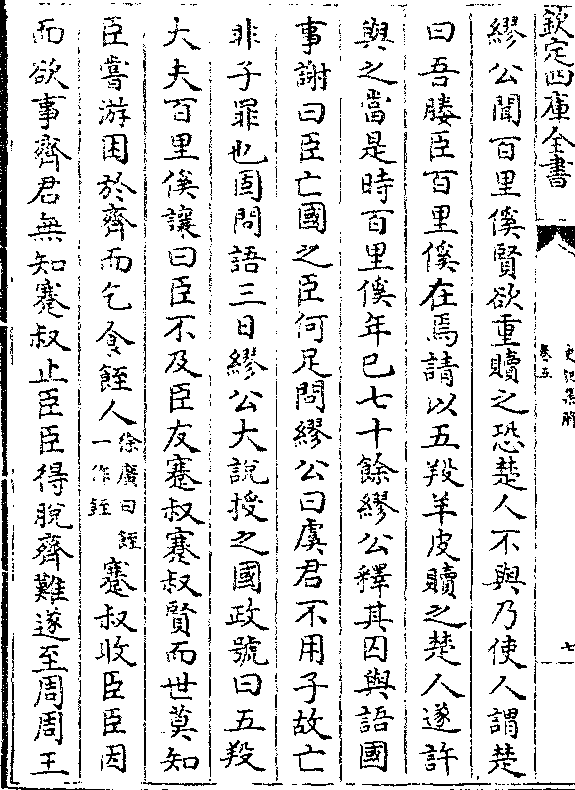 欽定四庫全書
史記集解
卷五
七
繆公聞百里傒賢欲重贖之恐楚人不與乃使人謂楚
曰吾媵臣百里傒在焉請以五羖羊皮贖之楚人遂許
與之當是時百里傒年已七十餘繆公釋其囚與語國
事謝曰臣亡國之臣何足問繆公曰虞君不用子故亡
非子罪也固問語三日繆公大說授之國政號曰五羖
大夫百里傒讓曰臣不及臣友蹇叔蹇叔賢而世莫知
臣嘗游困於齊而乞食餁人徐廣曰餁一作銍蹇叔收臣臣因
而欲事齊君無知蹇叔止臣臣得脫齊難遂至周周王